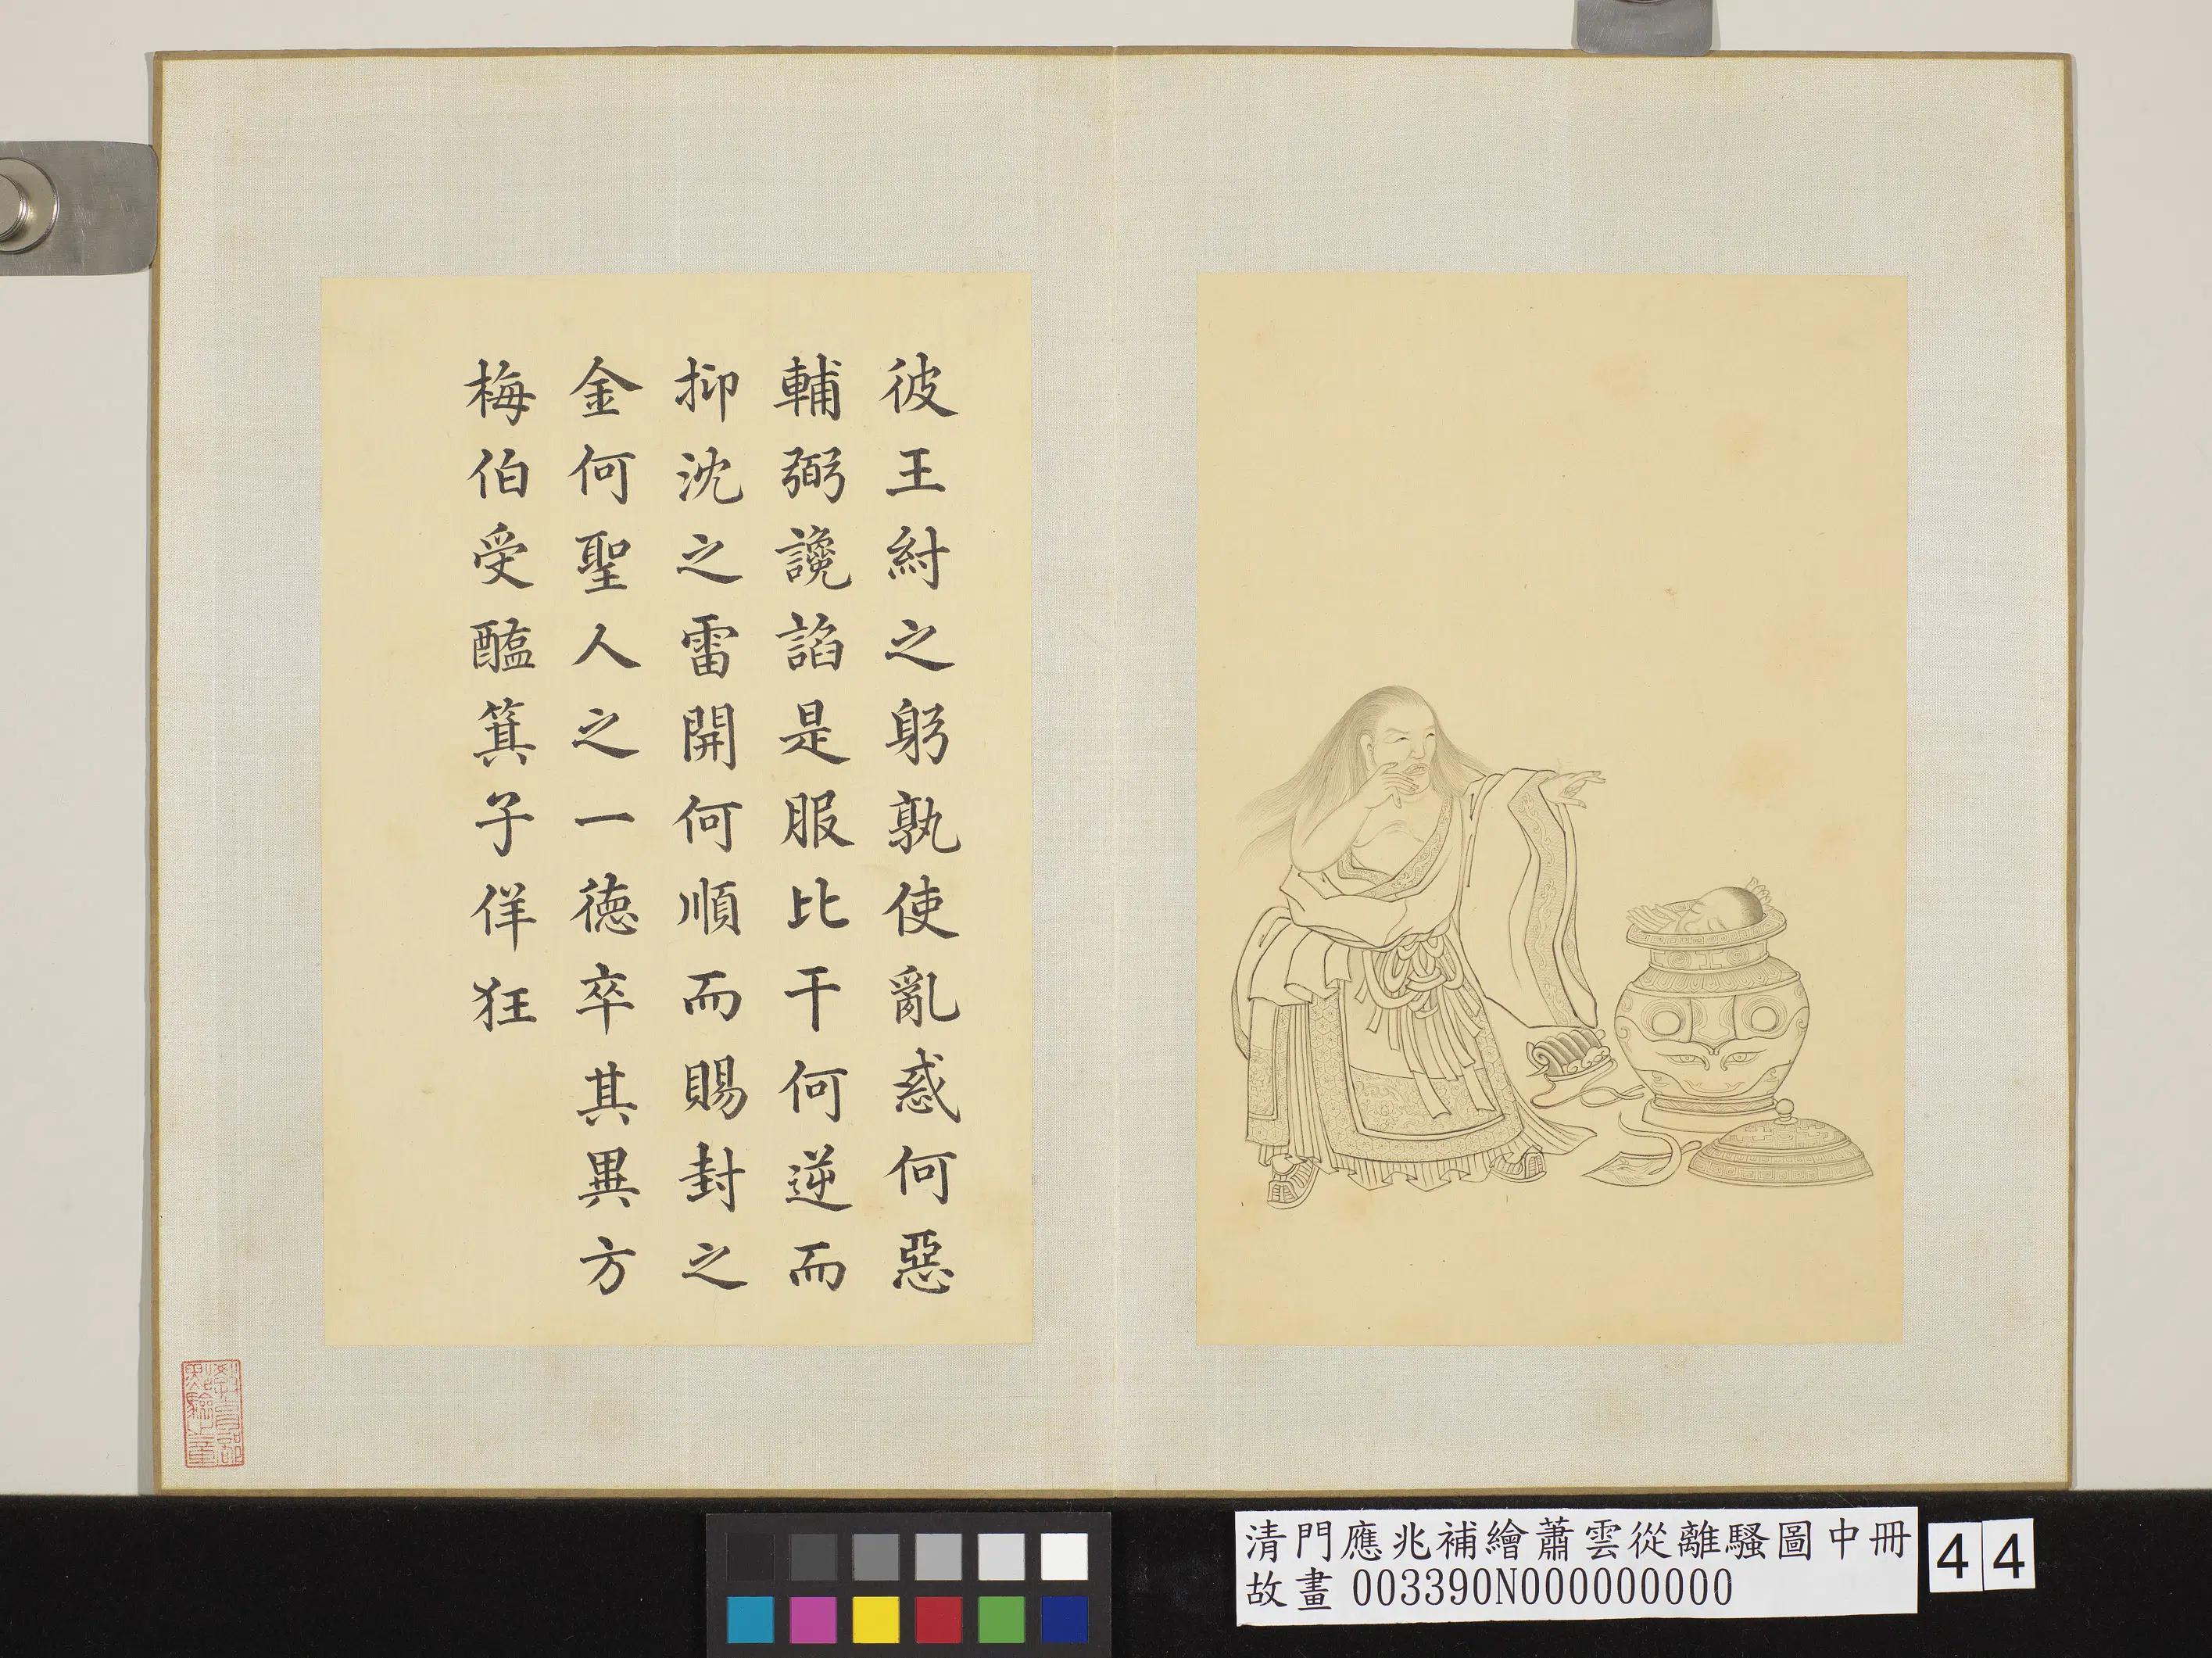 彼王紂之躬孰使亂惑何惡
輔弼讒諂是服比干何逆而
抑沈之雷開何順而賜封之
金何聖人之一德卒其異方
梅伯受醢箕子佯狂
教育部
點驗之章
清門應兆補繪蕭雲從離騷圖中冊
故畫 003390N000000000
44